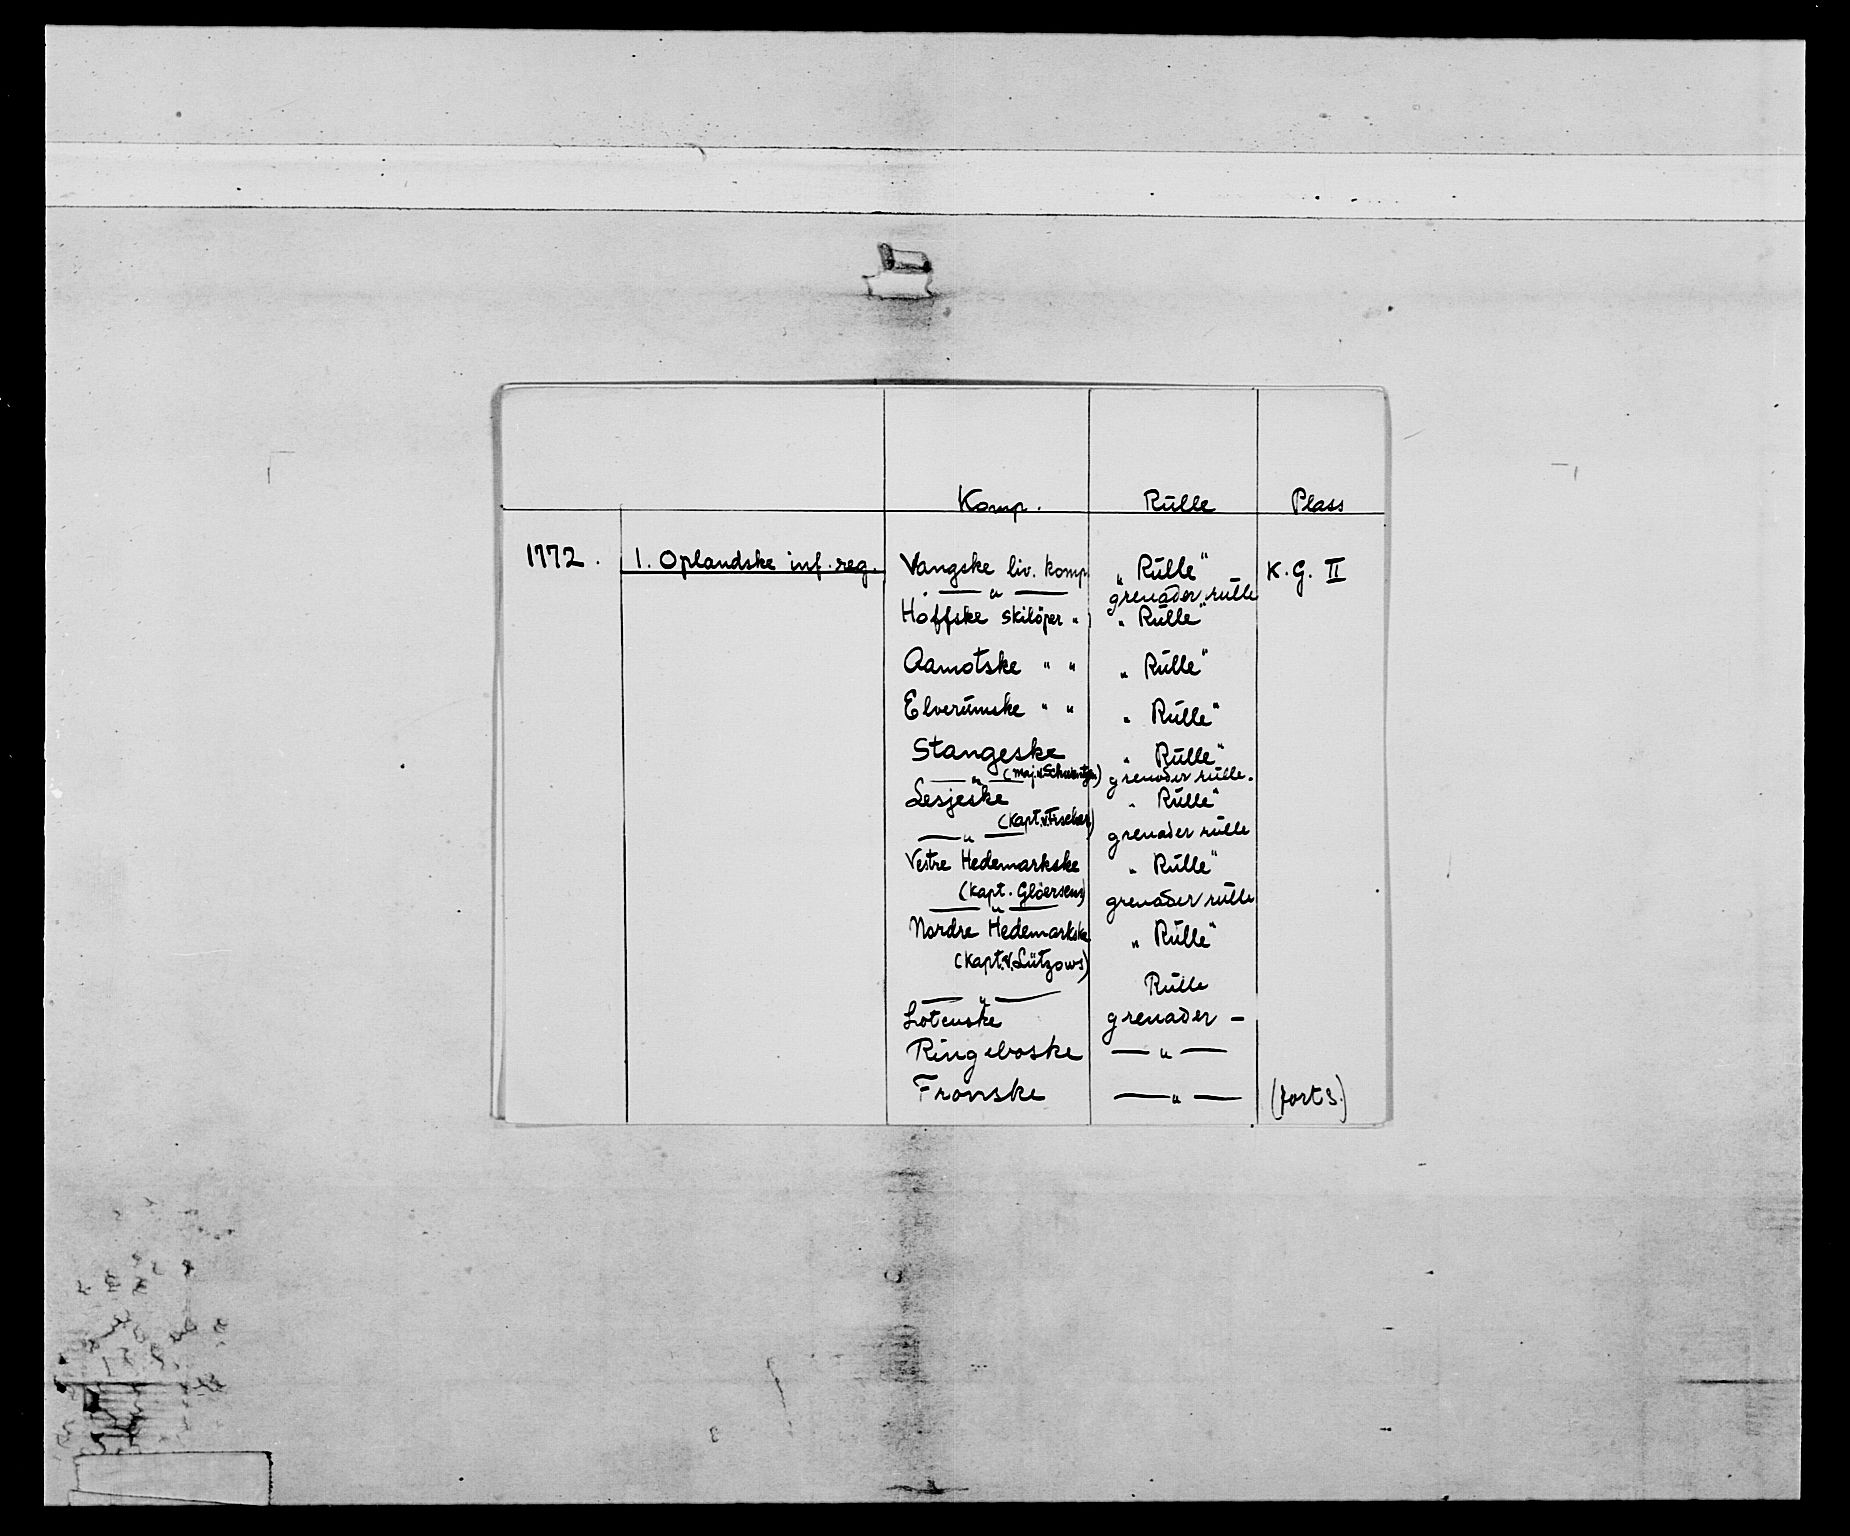 Komp. Rulle Plass
1772. 1. Oplandske inf. reg. Vangske liv. komp. „Rulle“ K.G. II
—„— grenader rulle
Hoffske skilöper " „Rulle“
Aamotske " " „Rulle“
Elverumske " " „Rulle“
Stangeske „Rulle“
—„— (maj. v. ) grenader rulle.
Lesjeske „Rulle“
(Kapt. v. )
—„— grenader rulle
Vestre Hedemarkske „Rulle“
(Kapt. Glöersens)
—„— grenader rulle
Nordre Hedemarkske „Rulle“
(Kapt. v. Lützows)
—„— Rulle
Lotenske grenader —
Ringeboske —„—
Fronske —„— (forts.)